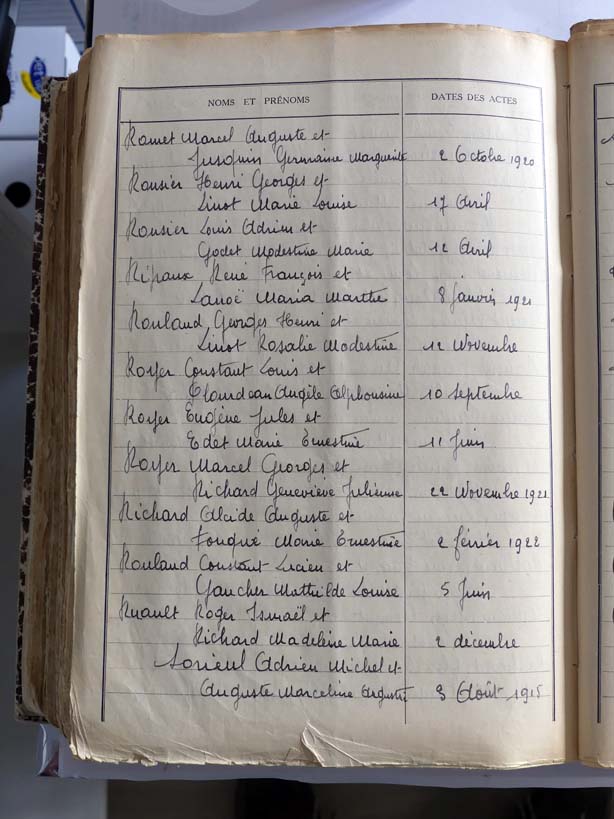 NOMS ET PRÉNOMS DATES DES ACTES
Ramet Marcel Auguste et
Jusquin Germaine Marguerite 2 Octobre 1920
Rousier Henri Georges et
Linot Marie Louise 17 Avril
Rousier Louis Adrien et
Godet Modestine Marie 12 Avril
Ripaux René François et
Lanoë Maria Marthe 8 Janvier 1921
Rouland Georges Henri et
Linot Rosalie Modestine 12 Novembre
Royer Constant Louis et
Angèle Alphonsine 10 Septembre
Royer Eugène Jules et
Edet Marie Ernestine 11 Juin
Royer Marcel Georges et
Richard Geneviève Julienne 22 Novembre 1921
Richard Alcide Auguste et
Fouqué Marie Ernestine 2 février 1922
Rouland Constant Lucien et
Gaucher Mathilde Louise 5 Juin
Ruault Roger Ismaël et
Richard Madeleine Marie 2 décembre
Lorieul Adrien Michel et
Auguste Marceline 3 Août 1915